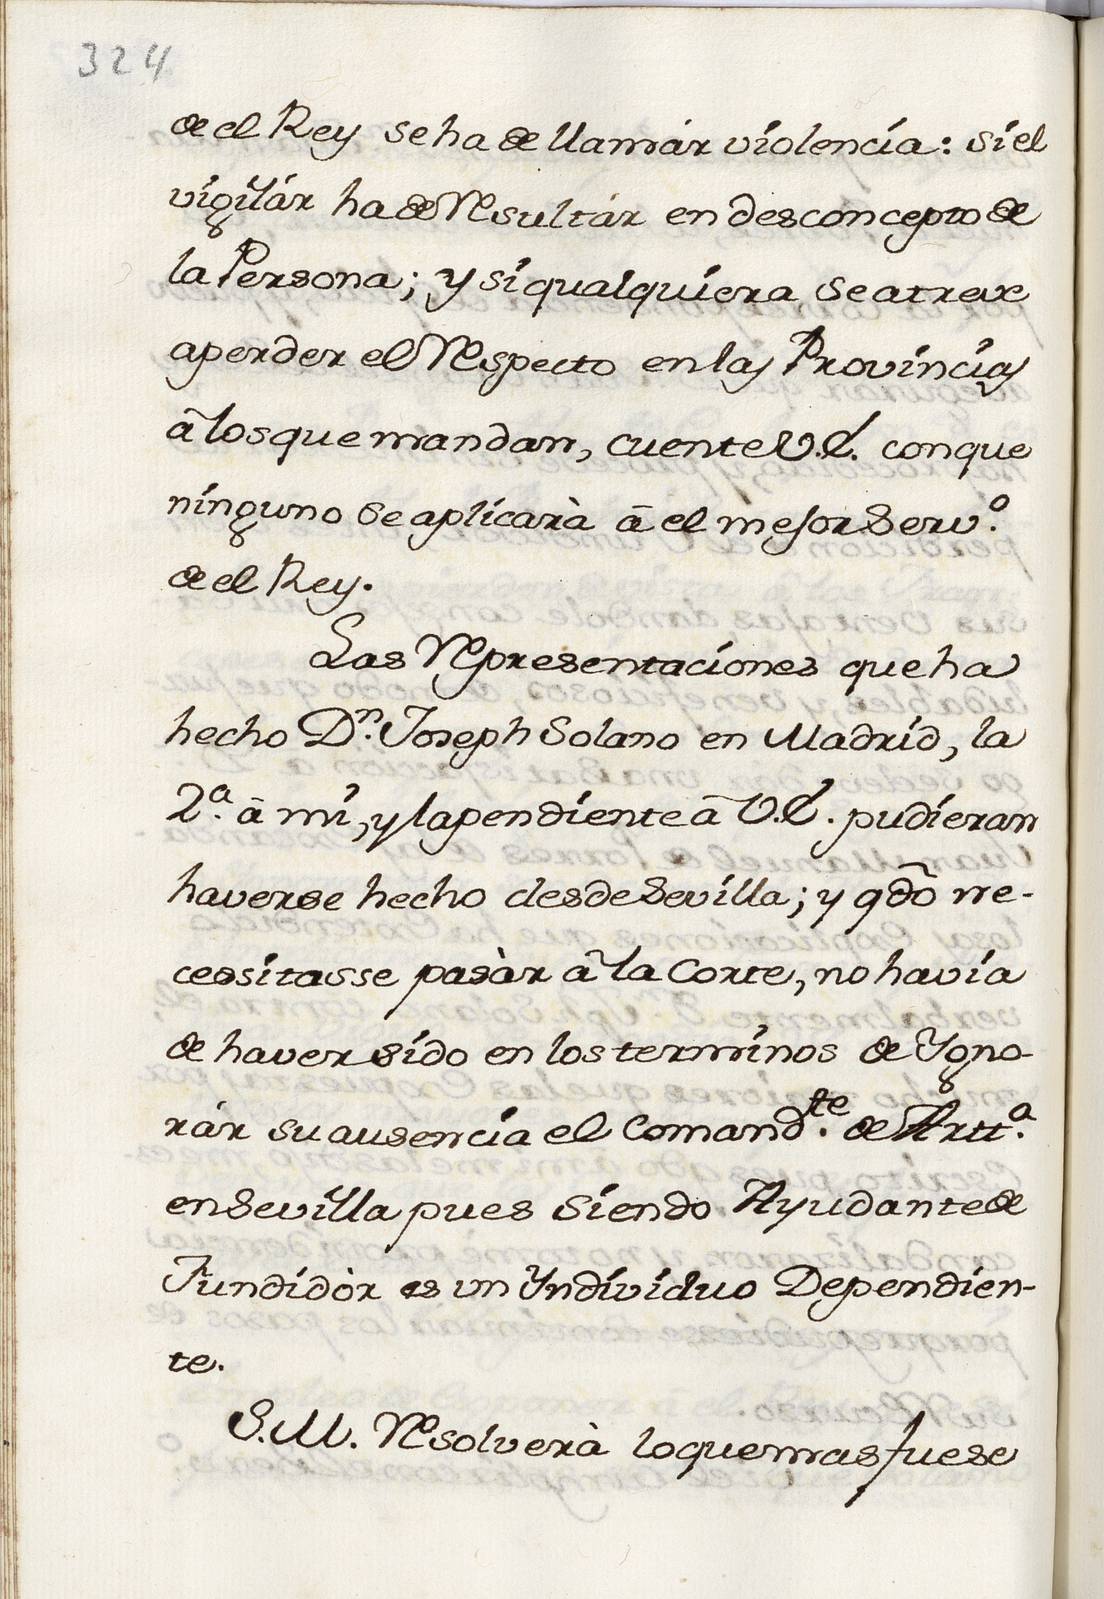 324
de el Rey se ha de llamár violencia: si el
vigilár ha de Resultár en desconcepto de
la Persona; y si qualquiera se atreve
a perder el Respecto en las Provincias
â los que mandan, cuente V.E. con que
ninguno se aplicarà â el mejor Serv.º
de el Rey.
Las Representaciones que ha
hecho Dⁿ. Joseph Solano en Madrid, la
2.ª â mi, y la pendiente â V.E. pudieran
haverse hecho desde Sevilla; y qdõ ne-
cessitasse pasàr â la Corte, no havia
de haver sido en los terminos de Ygno-
rár su ausencia el Comand.te de Artt.ª
en Sevilla pues siendo Ayudante de
Fundidòr es un Yndividuo Dependien-
te.
S.M. Resolverà lo que mas fuese